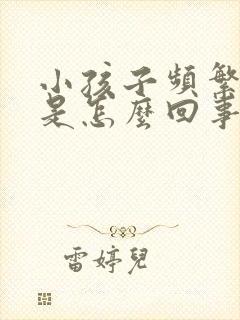 小孩子頻繁
是怎麼回事
雷婷兒